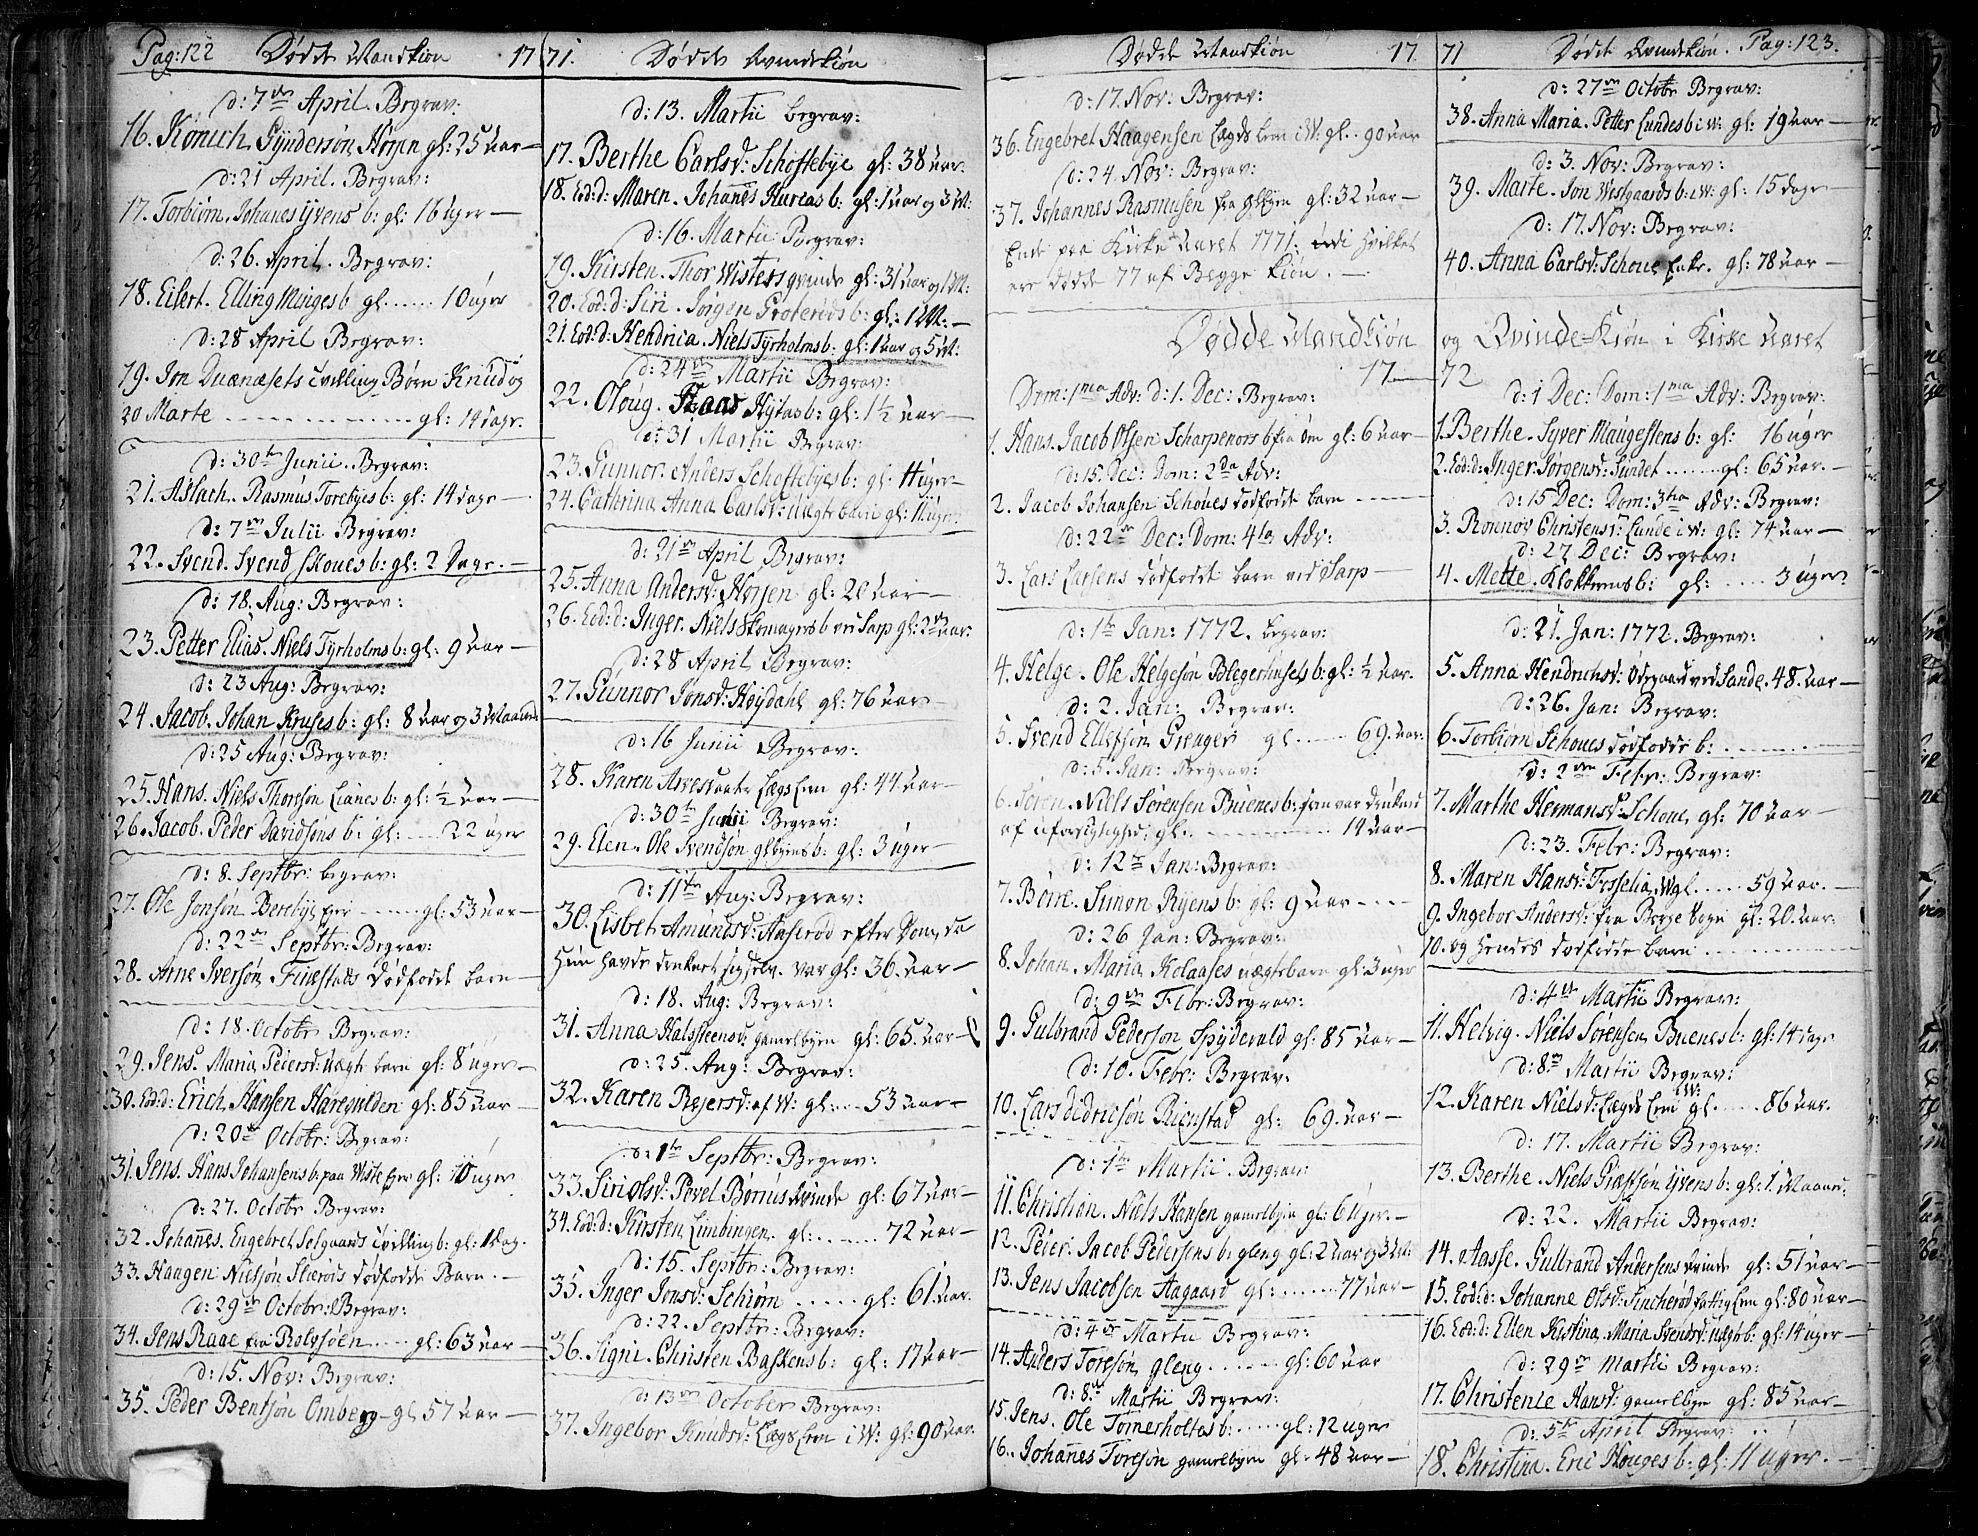 Pag: 122 Dødde Mandkiøn 17
d: 7de April. Begrav:
16. Könich Gyndersön Hörsen gl: 25 aar—
d: 21 April. Begrav:
17. Torbiörn. Johanes Yvens b: gl: 16 uger—
d: 26. April. Begrav:
18. Eilert. Elling Minges b gl...... 10 uger
d: 28 April Begrav:
19. Jon Duenæsets tvilling Børn Knud og
20 Marte — — — gl: 14 dage.
d: 30te Junii. Begrav:
21. Aslach. Rasmus Torebyes b: gl: 14 dage—
d: 7de Julii Begrav:
22. Svend. Svend Skoues b: gl: 2 Dage.—
d: 18. Aug: Begrav:
23. Petter Elias. Niels Tyrholms b: gl: 9 aar—
d: 23 Aug: Begrav:
24. Jacob. Johan Kruses b: gl: 8 aar og 3 Maaned
d: 25 Aug: Begrav:
25. Hans. Niels Thoresön Lianes b: gl: ½ aar—
26. Jacob. Peder Davidsöns b: gl: — 22 uger
d: 8. Septbr: begrav:
27. Ole Jonsön Berebye Eier ........ gl: 53 aar—
d: 22de Septbr: Begrav:
28. Arne Iversön Finstads dödfödt barn—
d: 18. Octobr Begrav:
29. Jens. Maria Peiersd: Uægte barn gl: 8 uger—
30. Eod:d: Erich Hansen Haregulden gl: 85 aar—
d: 20de Octobr: Begrav:
31. Jens. Hans Johansens b: paa Viste Eier gl: 10 uger
d: 27. Octobr Begrav:
32. Johanes. Engebret Solgaards tvilling b: gl: 1 dag.
33. Haagen Nielsön Slærods dödfödde Barn.—
d: 29de Octobr: Begrav:
34. Jens Raae fra Rolvsöen..... gl: 63 aar—
d: 15. Nov: Begrav:
35. Peder Bentsön Omberg— gl: 57 aar—
71. Dødde Qvindekiøn
d: 13. Martii begrav:
17. Berthe Carlsd: Schoftebye gl: 38 aar.
18. Eod:d: Maren. Johanes Hureas b: gl: 1 aar og 3 M:
d: 16. Martii Begrav:
19. Kirsten. Thor Visters qvinde gl: 31 aar og 1 M:
20. Eod:d: Siri. Jörgen Groterods b: gl: 1 M:—
21. Eod:d: Hendrica. Niels Tyrholms b: gl: 1 aar og 5 M:
d: 24de Martii Begrav:
22. Oloug. Haas Hytas b: gl: 1½ aar—
d: 31 Martii Begrav:
23. Gunnor. Anders Schoftebyes b: gl: 11 uger—
24. Cathrina. Anna Carlsd: uægte barn gl: 11 uger:
d: 21de April Begrav:
25. Anna Andersd: Hörsen gl: 20 aar—
26. Eod:d: Inger. Niels Skomagers b ved Sarp gl: 2 aar.
d: 28 April Begrav:
27. Gunnor Jonsd: Høydahl gl: 76 aar—
d: 16 Junii Begrav:
28. Karen Arvesdaater LægsLem gl: 44 aar—
d: 30te Junii Begrav:
29. Elen. Ole Svendsön glbyens b: gl: 3 uger—
d: 11te Aug: Begrav:
30. Lisbet Amundsd: Aaserod efter Dom, da
Hun havde druknet sig selv. var gl: 36. aar—
d: 18. Aug: Begrav:
31. Anna Halsteensd: gamelbyen gl: 65. aar—
d: 25. Aug: Begrav:
32. Karen Rejersd: af W: gl: .... 53 aar—
d: 1te Septbr: Begrav:
33. Siri Olsd: Povel Børrus Kvinde gl: 67 aar—
34. Eod:d: Kirsten Limbingen. gl: ......... 72 aar—
d: 15. Septbr: Begrav:
35. Inger Jonsd: Schiörn ..... gl: 61 aar.
d: 22. Septbr: Begrav:
36. Signi. Christen Baskens b: gl: 17 aar—
d: 13de October Begrav:
37. Ingebor Knudsd: LægsLem i W: gl: 90 aar.
Dødde Mandkiøn 17
d: 17. Nov: Begrav:
36. Engebret Haagensen LægdsLem i W: gl.. 90 aar
d: 24. Nov: Begrav:
37. Johannes Rasmusen fra glbyen gl: 32 aar—
Ende paa Kirke Aaret 1771. udi hvilket
ere dødde 77 af Begge kiøn.—
Dødde Mandkiøn
17—
Dom: 1ma Adv: d: 1. Dec: Begrav:
1. Hans. Jacob Olsen Scharpenors b fra öm gl: 6 aar—
d: 15. Dec: Dom: 2da Adv:
2. Jacob Johansen Schoues dödfödt barn ----
d: 22de Dec: Dom: 4ta Adv:
3. Lars Larsens dödfödt barn ved Sarp—
d: 1te Jan: 1772. begrav:
4. Helge. Ole Helgesön Blegerhusets b: gl: ½ aar.
d: 2. Jan: Begrav:
5. Svend Ellefsön Grenger gl..... 69. aar.
d: 5. Jan: Begrav:
6. Sören. Niels Sörensen Buenes b: som var druknet
af uforsigtighed: gl: — — 14 aar—
d: 12te Jan: Begrav:
7. Børre. Simon Ryens b: gl: 9 aar----
d: 26 Jan: Begrav:
8. Johan. Maria Kolaases uægtebarn gl: 3 uger
d: 9de Febr: Begrav:
9. Gulbrand Pedersön Spydevold gl: 85 aar—
d: 10. Febr: Begrav:
10. Lars Didricsön Bienstad gl: 69. aar—
d: 1te Martii. Begrav:
11. Christian. Niels Hansen gamelbyen gl: 6 Uger.—
12. Peder. Jacob Pedersens b: gleng gl: 2 aar og 3 M:
13. Jens Jacobsen Aagaard gl: ....... 77 aar—
d: 4de Martii Begrav:
14. Anders Toresön, gleng...... gl: 60 aar
d: 8de Martii Begrav:
15. Jens. Ole Tomerholtes b: ..... gl: 12 uger
16. Johanes Toresön gamelbyen gl: 48 aar—
71 Dødde Qvindekiøn. Pag: 123.
d: 27de Octobr Begrav:
38. Anna Maria. Petter Lundes b i W: gl: 19 aar—
d: 3. Nov: Begrav:
39. Marte. Jon Westgaards b: i W: gl: 15 dage—
d: 17. Nov: Begrav:
40. Anna Carlsd: Schoue Enke. gl: 78 aar—
og Qvinde-Kiøn i Kirke Aaret
72
d: 1 Dec: Dom: 1ma Adv: Begrav:
1. Berthe. Syver Maugestens b: gl: 16 uger
2. Eod:d: Inger Jörgensd: Sundet ....... gl: 65 aar.—
d: 15 Dec: Dom: 3tia Adv: Begrav:
3. Ronnov Christensd: Lunde i W: gl: 74 aar—
d: 27 Dec: Begrav:
4. Mette. Klokkerens b: gl: .... 3 uger.
d: 21. Jan: 1772. Begrav:
5. Anna Hendrichsd: Ödegaard ved Sande. 48. aar—
d: 26. Jan: Begrav:
6. Torbiörn Schoues dödfödde b: ........
d: 2den Febr: Begrav:
7. Marthe Hermansd: Schoue, gl: 70 aar—
d: 23. Febr: Begrav:
8. Maren Hansd: Tosselia, W gl..... 59 aar.—
9. Ingebor Andersd: fra Borge Sogn gl: 20. aar.
10. og hendes dödfödde barn ........
d: 4de Martii Begrav:
11. Helvig. Niels Sörensen Buenes b: gl: 14 dage
d: 8de Martii Begrav:
12. Karen Nielsd: LægdsLem W: gl.... 86 aar.
d: 17. Martii Begrav:
13. Berthe. Niels Giæstsön Yvens b: gl: 1. Maaned.
d: 22. Martii Begrav:
14. Aasse. Gulbrand Andersens Kvinde gl: 51 aar—
15. Eod:d: Johanne Olsd: Sincheröd fattig Lem gl: 80 aar—
16. Eod:d: Ellen Kistina. Maria Svendsd: uægte b: gl: 14 uger—
d: 29de Martii Begrav:
17. Christence Hansd: gamelbyen gl: 85 aar—
d: 5te April Begrav:
18. Christina. Eric Houges b: gl: 11 uger.—